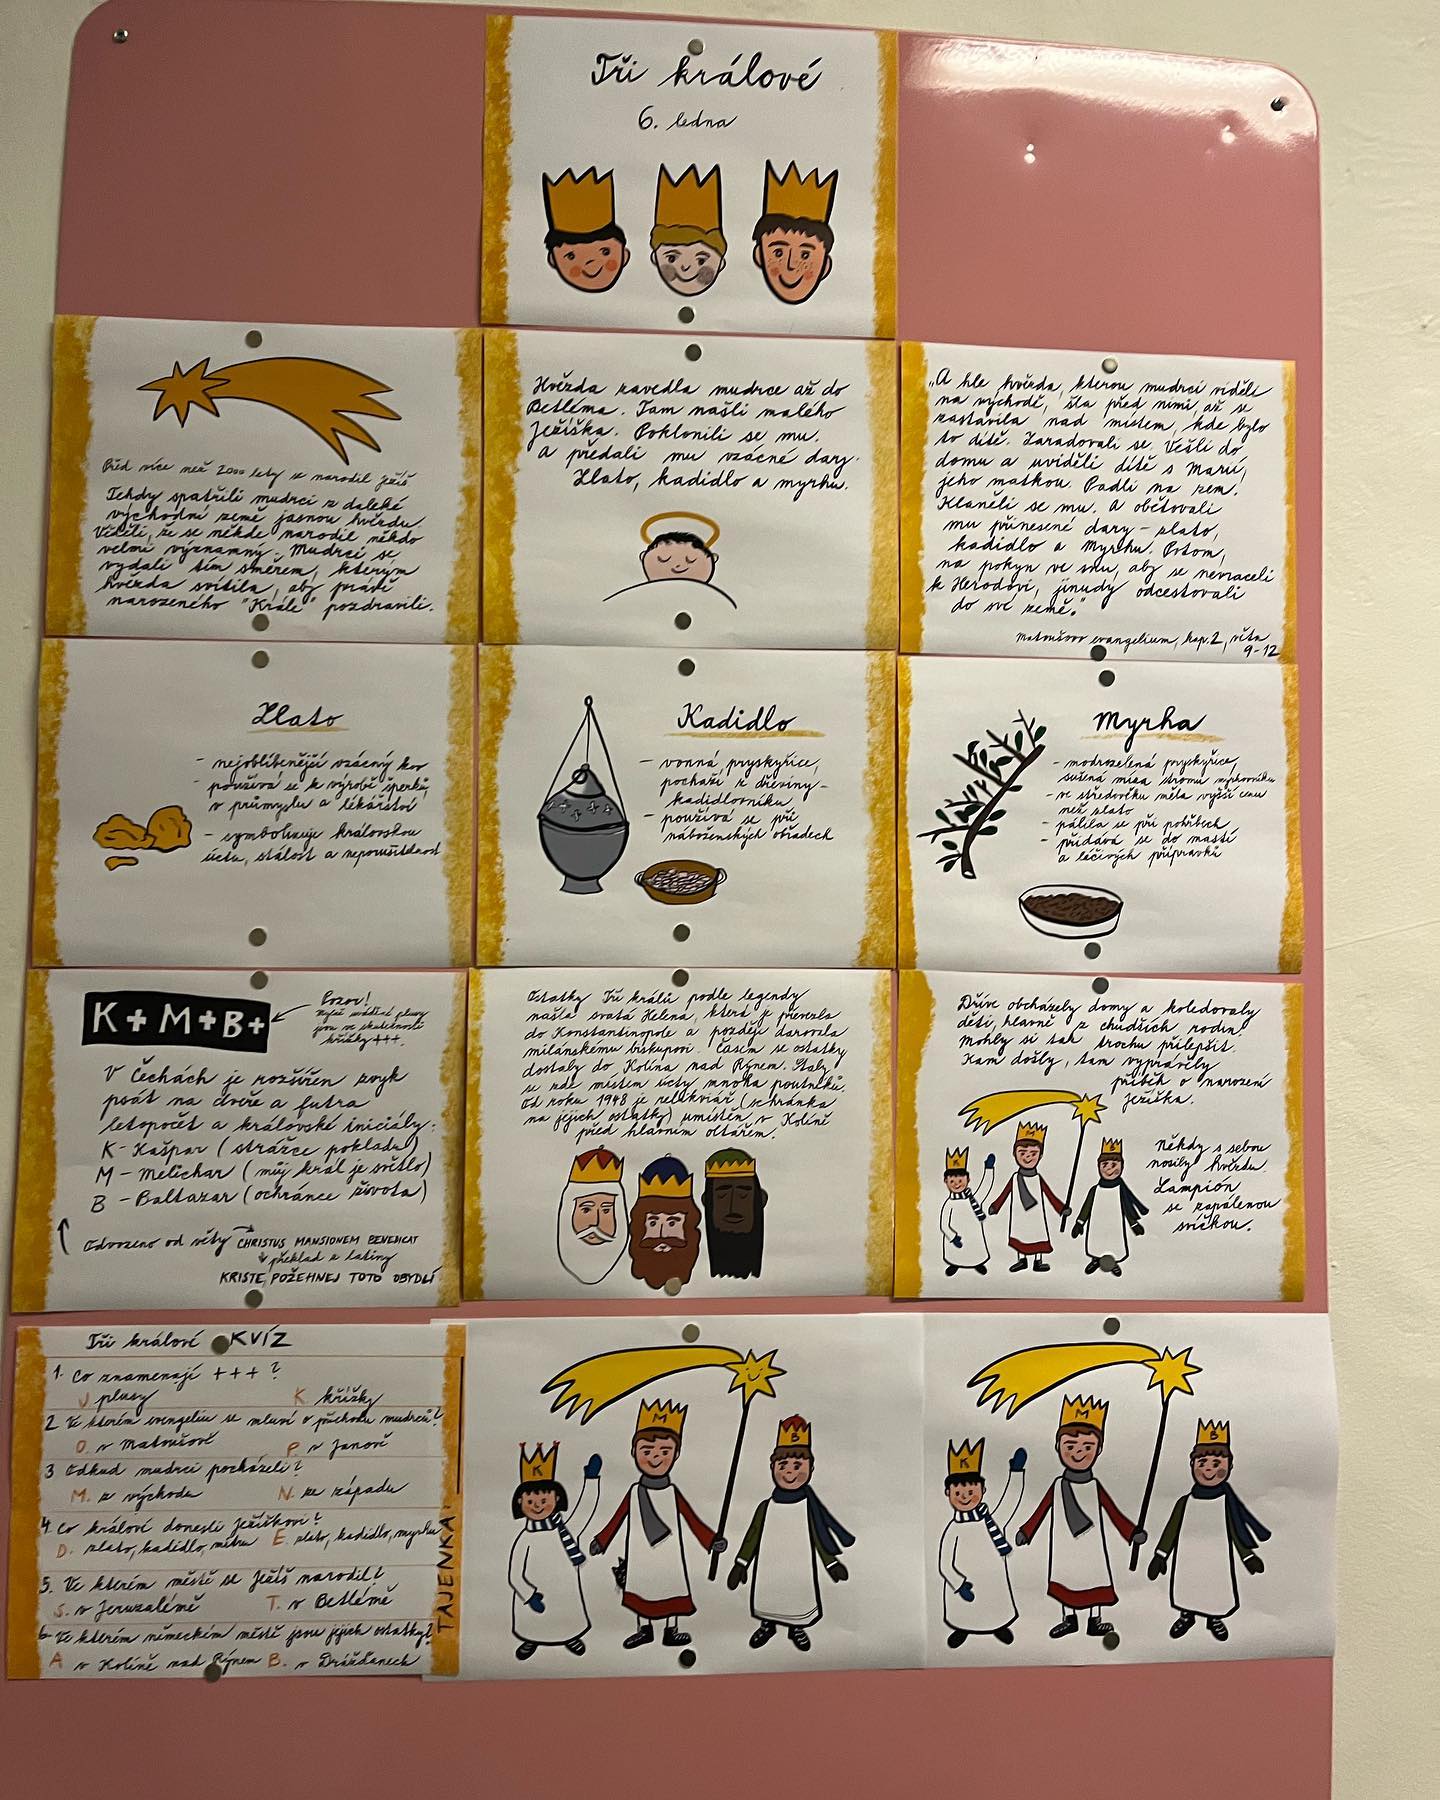 Tři králové
6. ledna
Před více než 2000 lety se narodil Ježíš
Tehdy spatřili mudrci z daleké
východní země jasnou hvězdu.
Věděli, že se někde narodil někdo
velmi významný. Mudrci se
vydali tím směrem, kterým
hvězda svítila, aby právě
narozeného "Krále" pozdravili.
Hvězda zavedla mudrce až do
Betléma. Tam našli malého
Ježíška. Poklonili se mu.
a předali mu vzácné dary.
Zlato, kadidlo a myrhu.
„A hle hvězda, kterou mudrci viděli
na východě, šla před nimi, až se
zastavila nad místem, kde bylo
to dítě. Zaradovali se. Vešli do
domu a uviděli dítě s Marií,
jeho matkou. Padli na zem.
Klaněli se mu. A obětovali
mu přinesené dary - zlato,
kadidlo a Myrhu. Potom,
na pokyn ve snu, aby se nevraceli
k Herodovi, jinudy odcestovali
do své země."
Matoušovo evangelium, kap. 2, věta
9-12
Zlato
- nejoblíbenější vzácný kov
- používá se k výrobě šperků,
v průmyslu a lékařství
- symbolizuje královskou
úctu, stálost a neporušitelnost
Kadidlo
- vonná pryskyřice,
pochází z dřeviny -
kadidlovníku
- používá se při
náboženských obřadech
Myrha
- modrozelená pryskyřice,
sušená míza stromu myrhovníku
- ve středověku měla vyšší cenu
než zlato
- pálila se při pohřbech
- přidává se do mastí
a léčivých přípravků
K+M+B+
Pozor!
jsou ve skutečnosti
křížky +++.
V Čechách je rozšířen zvyk
psát na dveře a futra
letopočet a královské iniciály:
K - Kašpar (strážce pokladu)
M - Melichar (můj král je světlo)
B - Baltazar (ochránce života)
Odvozeno od věty CHRISTUS MANSIONEM BENEDICAT
překlad z latiny
KRISTE, POŽEHNEJ TOTO OBYDLÍ
Ostatky Tří králů podle legendy
našla svatá Helena, která je převezla
do Konstantinopole a později darovala
milánskému biskupovi. Časem se ostatky
dostaly do Kolína nad Rýnem. Staly
se zde místem úcty mnoha poutníků.
Od roku 1948 je relikviář (schránka
na jejich ostatky) umístěn v Kolíně
před hlavním oltářem.
Dříve obcházely domy a koledovaly
děti, hlavně z chudších rodin.
Mohly si tak trochu přilepšit.
Kam došly, tam vyprávěly
příběh o narození
Ježíška.
Někdy s sebou
nosily hvězdu
Lampión
se zapálenou
svíčkou.
K
M
B
Tři králové KVÍZ
1. Co znamenají +++?
J plusy K křížky
2 Ve kterém evangeliu se mluví o příchodu mudrců?
O. v Matoušově P. v Janově
3 Odkud mudrci pocházeli?
M. z východu N. ze západu
4. Co králové donesli Ježíškovi?
D. zlato, kadidlo, E. zlato, kadidlo, myrhu
5. Ve kterém městě se Ježíš narodil?
S. v Jeruzalémě T. v Betlémě
6. Ve kterém německém městě jsou jejich ostatky?
A v Kolíně nad Rýnem B. v Drážďanech
TAJENKA:
K
M
B
K
M
B